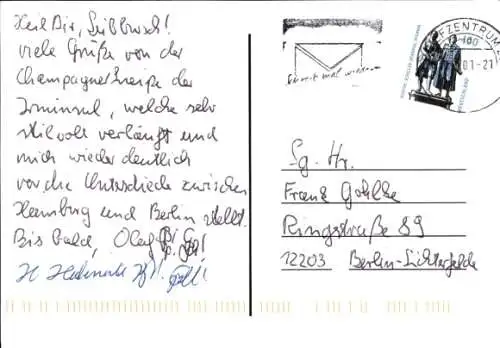 Heil Dir, Leibbursch!
viele Grüße von der
Champagnerkneipe der
Irminsul, welche sehr
stilvoll verläuft und
mich wieder deutlich
vor die Unterschiede zwischen
Hamburg und Berlin stellt.
Bis bald, Olaf
Schreib mal wieder
FZENTRUM
100
01-21
DEUTSCHLAND
Sg. Hr.
Frank Gohlke
Ringstraße 89
12203 Berlin-Lichterfelde